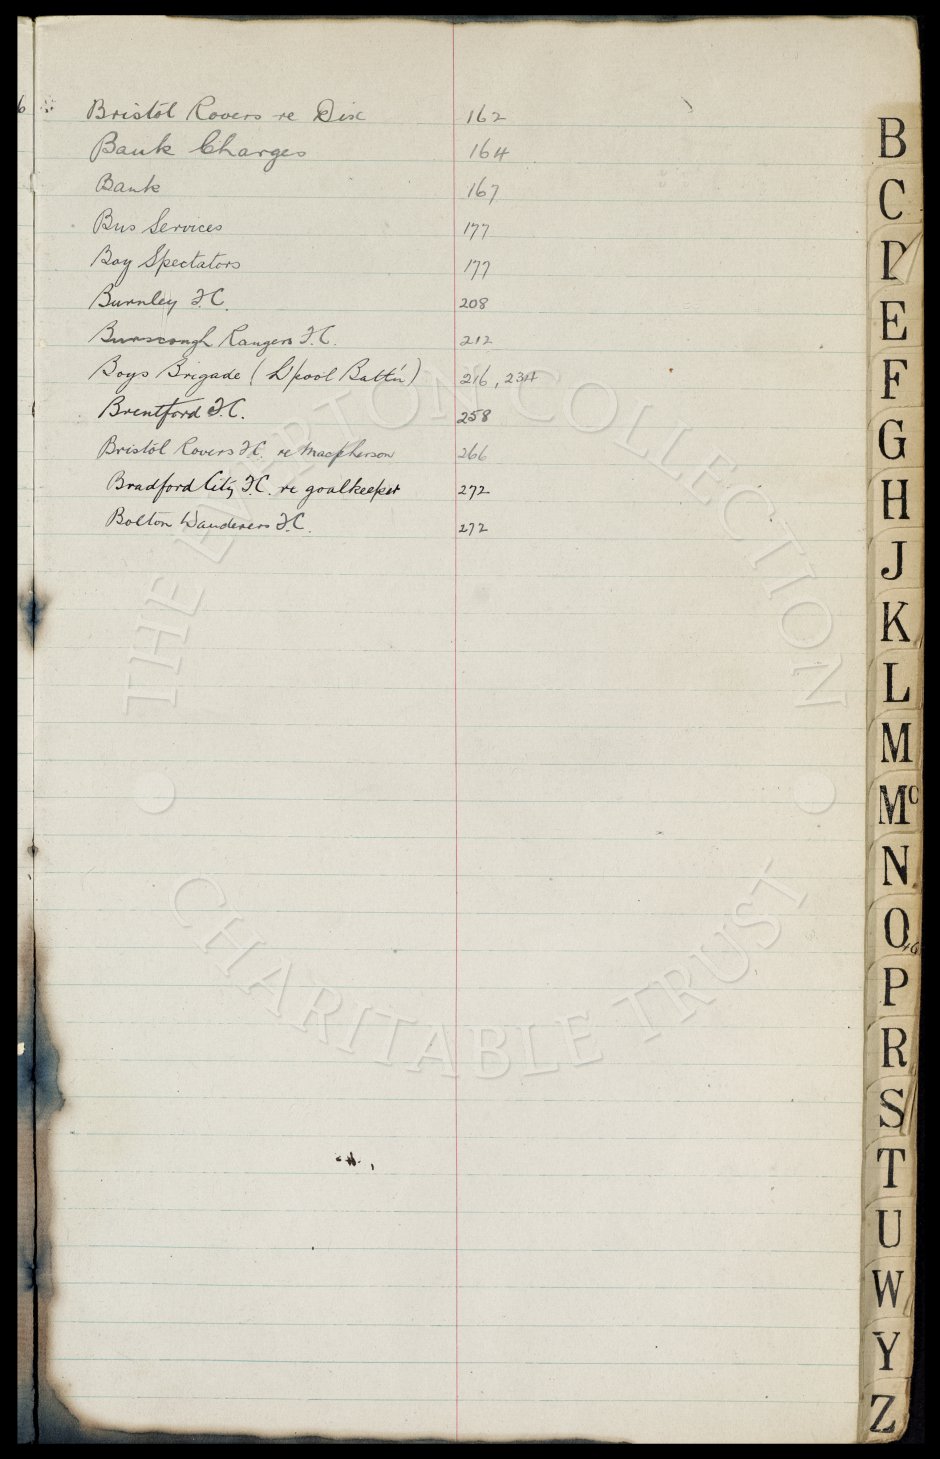 Bristol Rovers re Dix 162
Bank Charges 164
Bank 167
Bus Services 177
Boy Spectators 177
Burnley F.C. 208
Burscough Rangers F.C. 212
Boys Brigade (L'pool Batt'n) 216, 234
Brentford F.C. 258
Bristol Rovers F.C. re Macpherson 266
Bradford City F.C. re goalkeeper 272
Bolton Wanderers F.C. 272
THE EVERTON COLLECTION
CHARITABLE TRUST
B
C
D
E
F
G
H
J
K
L
M
Mc
N
O
P
R
S
T
U
W
Y
Z